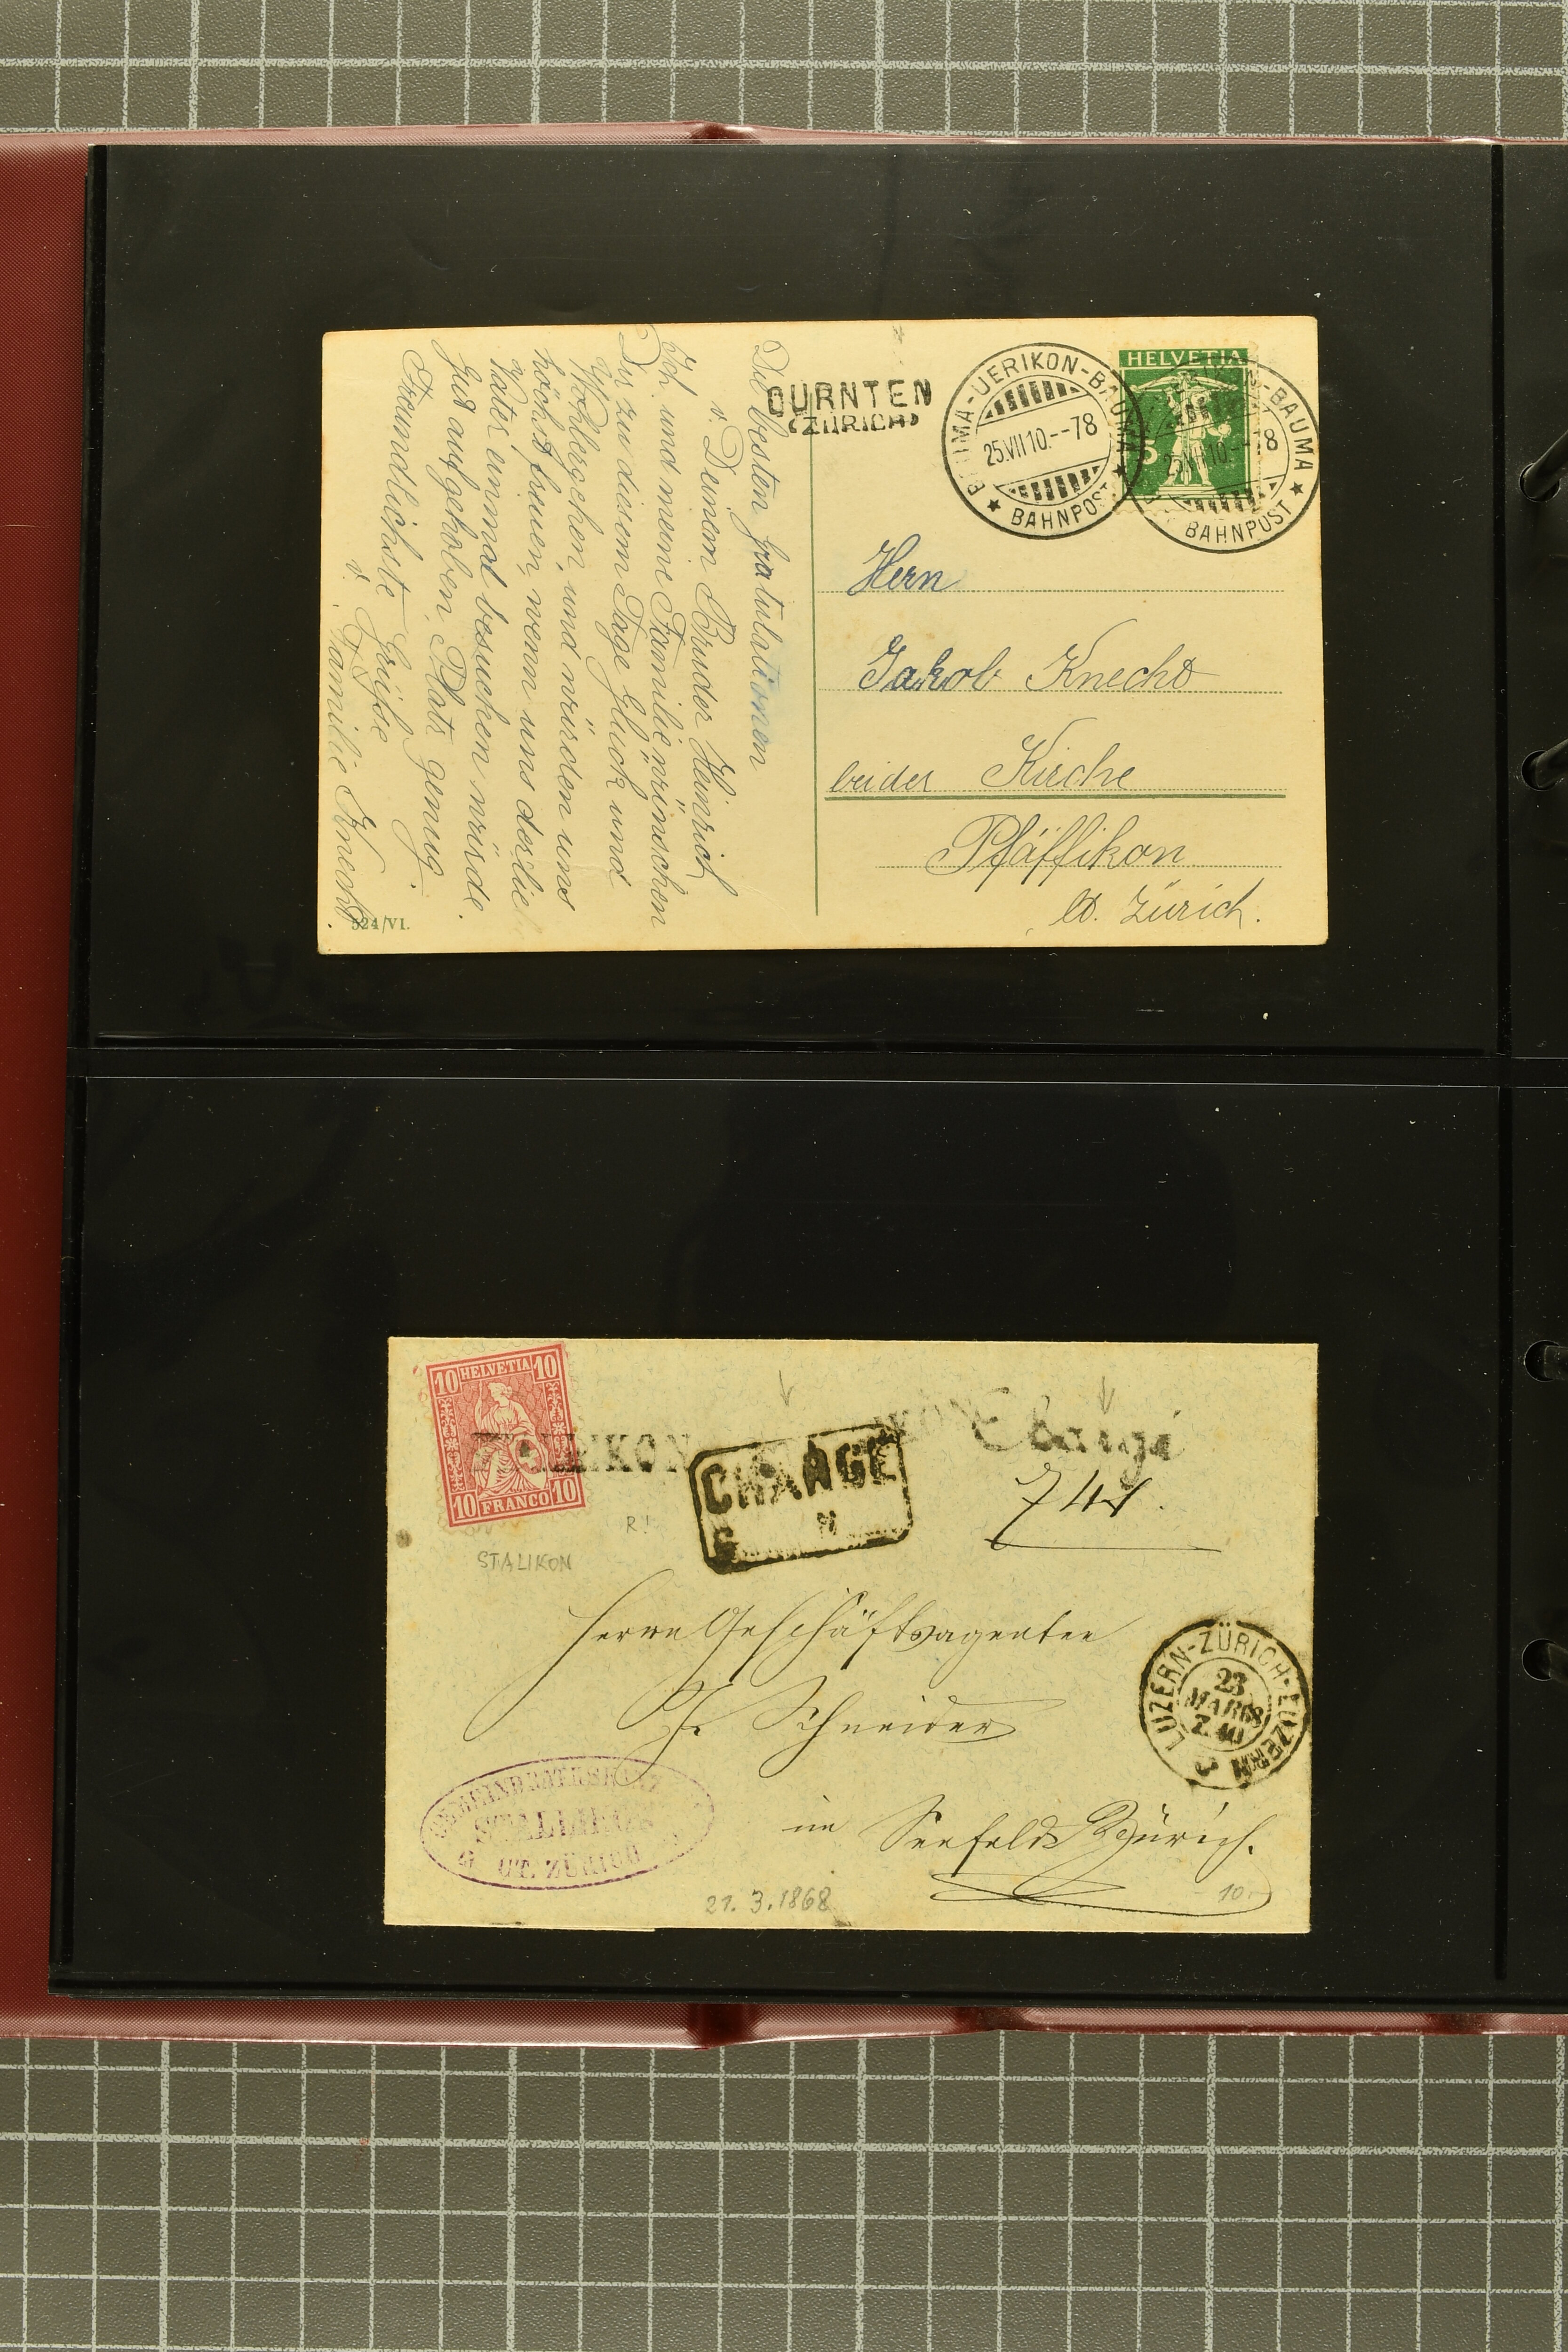 DÜRNTEN
(ZÜRICH)
BAUMA-UERIKON-BAUMA
25.VII.10.--78
★ BAHNPOST ★
HELVETIA
5
UERIKON-BAUMA
25.VII.10.--78
BAHNPOST ★
Die besten Gratulationen
v. Deinem Bruder Heinrich
Ich und meine Familie wünschen
Dir zu diesem Tage Glück und
Wohlergehen, und würden uns
höchst freuen, wenn uns der liebe
Vater einmal besuchen würde.
Gut aufgehoben, Platz genug.
Freundlichste Grüsse
v. Familie Knecht.
524/VI.
Hern
Jakob Knecht
bei der Kirche
Pfäffikon
Kt. Zürich.
10 HELVETIA 10
10 FRANCO 10
STALLIKON
CHARGÉ
741.
R!
STALIKON
Herrn Geschäftsagenten
J. Schneider
im Seefeld Zürich.
LUZERN-ZÜRICH-LUZERN
23
MAR 68
Z. 40
GEMEINDRATHSKANZLEI
STALLIKON
CT. ZÜRICH
21. 3. 1868
10.-